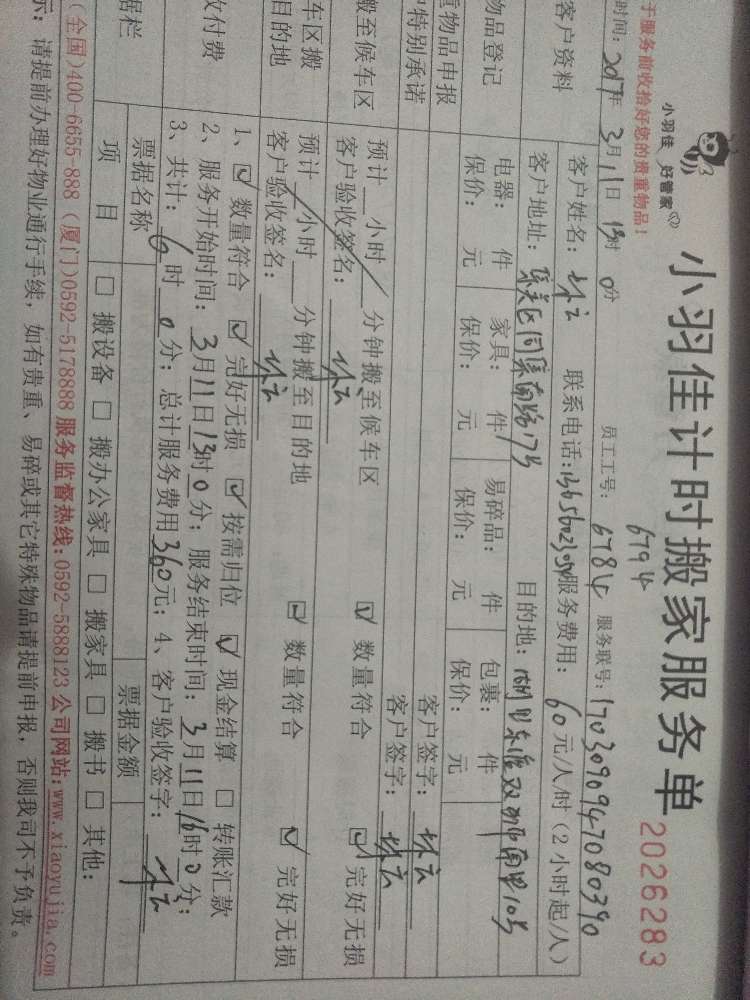 小羽佳 好管家
小羽佳计时搬家服务单
2026283
于服务前收拾好您的贵重物品!
6794
时间: 2017年 3月11日 13时 0分 员工工号: 6784 服务联号: 1703090947080390
客户资料
客户姓名: 联系电话: 服务费用: 60元/人/时(2小时起/人)
客户地址: 目的地:
物品登记
电器: 件 家具: 件 易碎品: 件 包裹: 件
保价: 元 保价: 元 保价: 元 保价: 元
物品申报 客户签字:
特别承诺 客户签字:
搬至候车区
预计 小时 分钟搬至候车区 ☑ 数量符合 ☑ 完好无损
客户验收签名:
车区搬
目的地
预计 小时 分钟搬至目的地 ☑ 数量符合 ☑ 完好无损
客户验收签名:
付费
1、☑ 数量符合 ☑ 完好无损 ☑ 按需归位 ☑ 现金结算 □ 转账汇款
2、服务开始时间: 3月11日13时0分; 服务结束时间: 3月11日16时0分;
3、共计: 6时0分; 总计服务费用360元; 4、客户验收签字:
据栏
票据名称 票据金额
项 目 □ 搬设备 □ 搬办公家具 □ 搬家具 □ 搬书 □ 其他:
(全国)400-6655-888 (厦门)0592-5178888 服务监督热线:0592-5888123 公司网站:www.xiaoyujia.com
示: 请提前办理好物业通行手续, 如有贵重、易碎或其它特殊物品请提前申报, 否则我司不予负责。